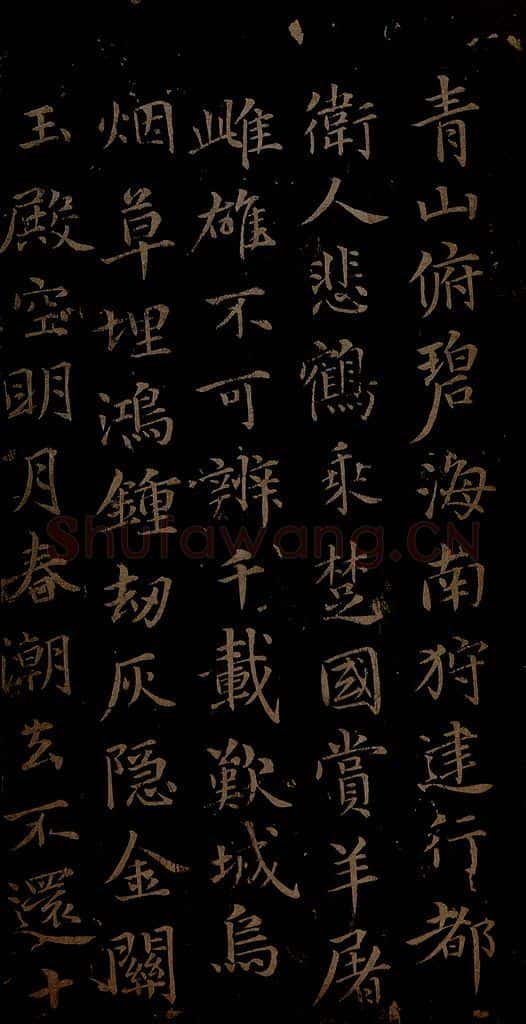 青山俯碧海南狩建行都
衛人悲鶴乘楚國賞羊屠
雌雄不可辨千載歎城烏
烟草埋鴻鍾劫灰隐金關
玉殿空明月春潮去不還十
Shufawang.CN